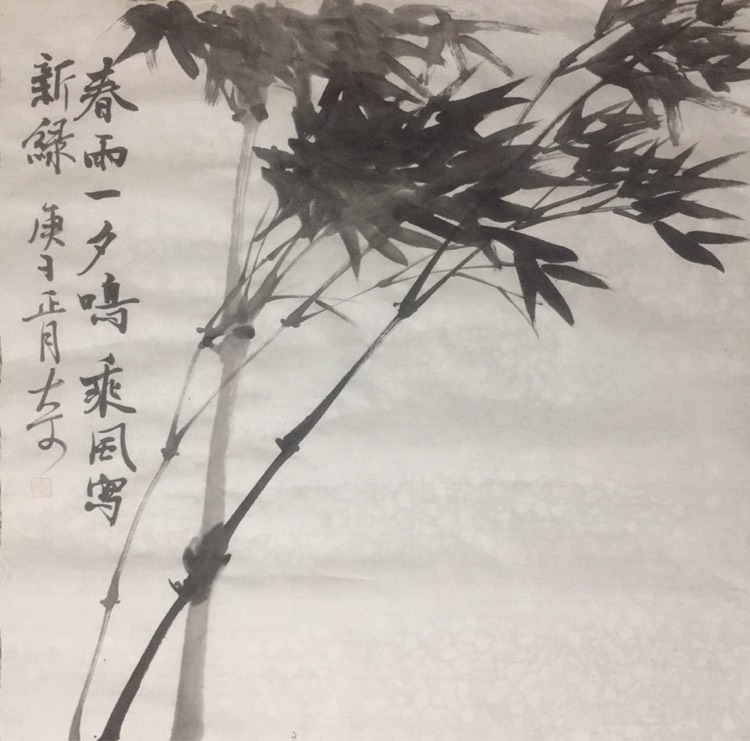 春雨一夕鳴乘風寫
新綠 庚子正月大